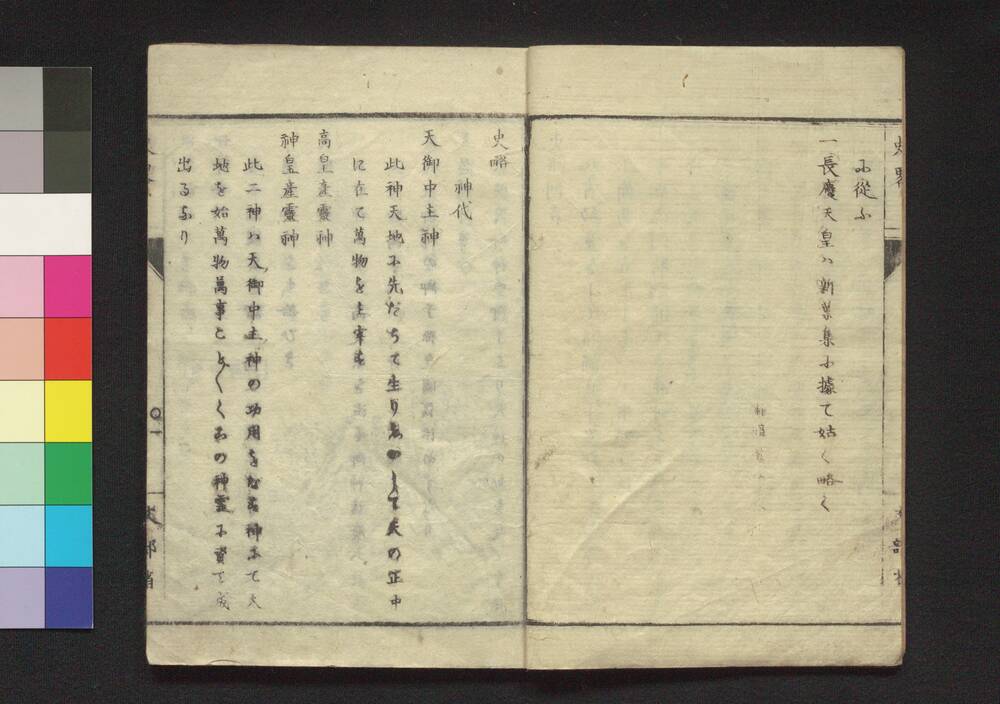 に從ふ
一長慶天皇ハ新葉集に據て姑く略く
史略
神代
天御中主神
此神天地に先だちて生りましして天の正中
に在て萬物を主宰す
高皇産靈神
神皇産靈神
此二神ハ天御中主神の功用をなす神にて天
地を始萬物萬事ことくくこの神靈に資て成
出るなり
史畧
○一
文部省